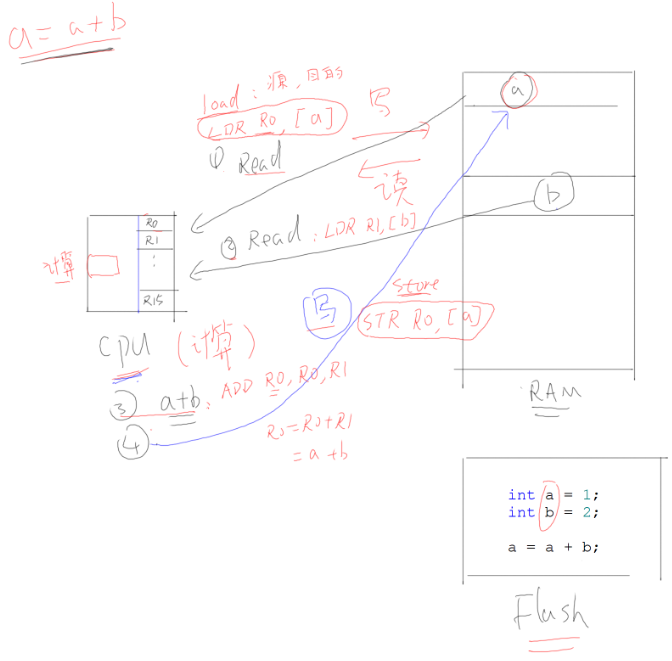 a = a + b
load : 源, 目的
LDR R0, [a]
写
① Read
读
a
b
② Read : LDR R1, [b]
R0
R1
⋮
R15
计算
store
写
STR R0, [a]
cpu (计算)
③ a+b : ADD R0, R0, R1
④
R0=R0+R1
= a + b
RAM
int a = 1;
int b = 2;
a = a + b;
Flash